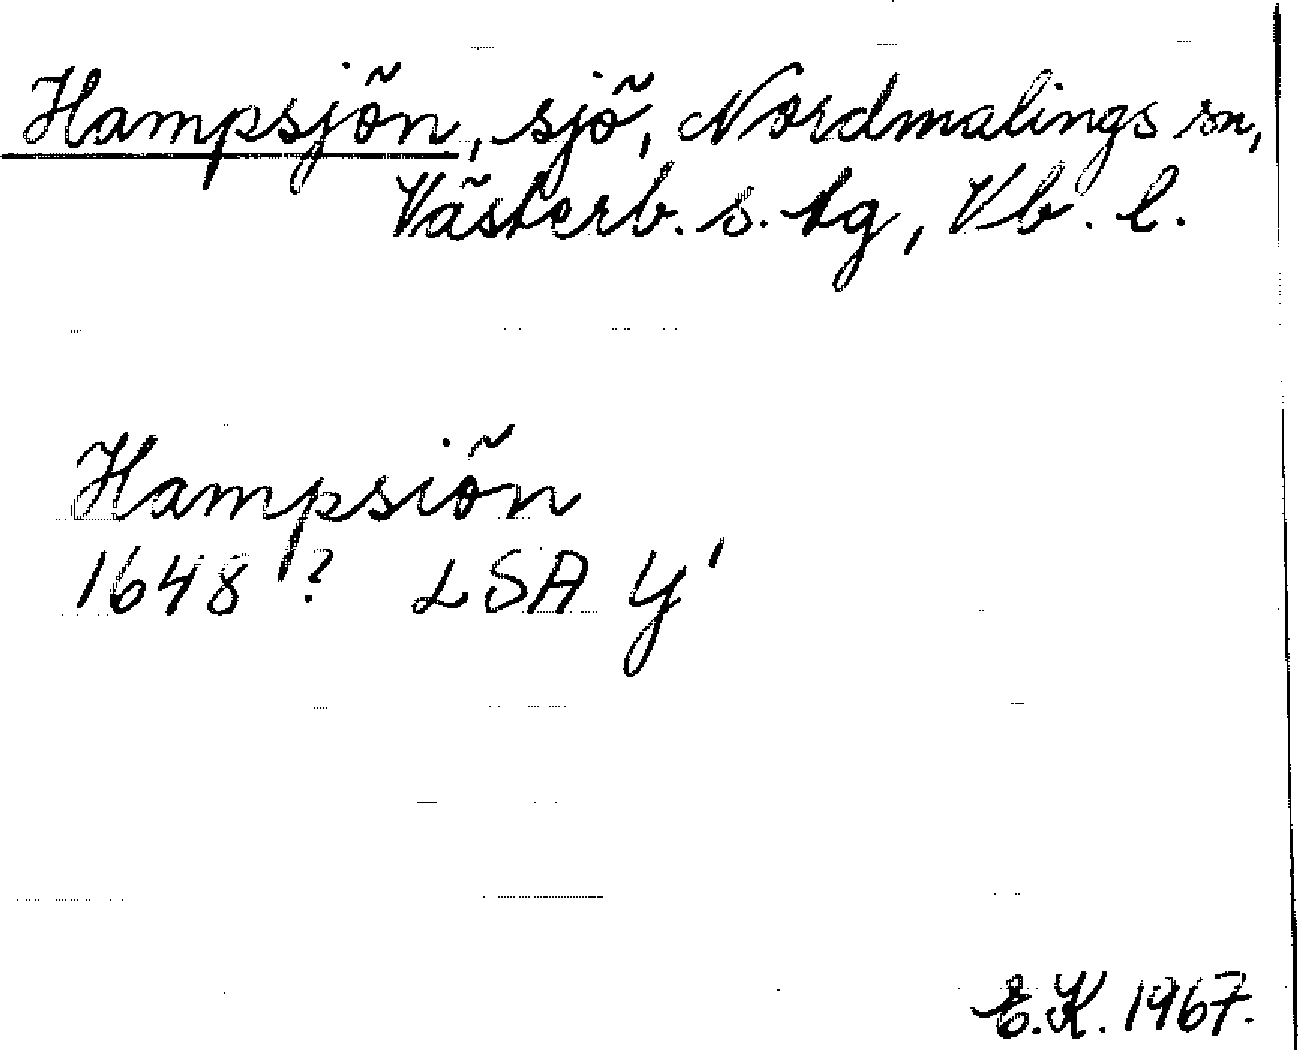 Hampsjön, sjö, Nordmalings sn,
Västerb. s. tg, Vb. l.
Hampsiön
1648? LSA Y¹
E.K. 1967.